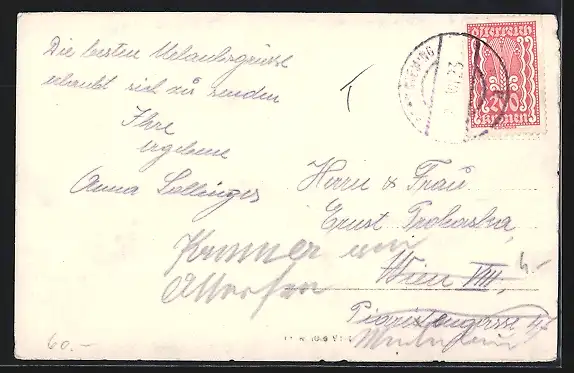 Die besten Urlaubsgrüsse
erlaubt sich zu senden
Ihre
ergebene
Anna Sollinger
Österreich
200
Kronen
23
Herrn & Frau
Ernst Prohaska
Wien VIII,
Piaristengasse 47
Kammer am
Attersee
60.-